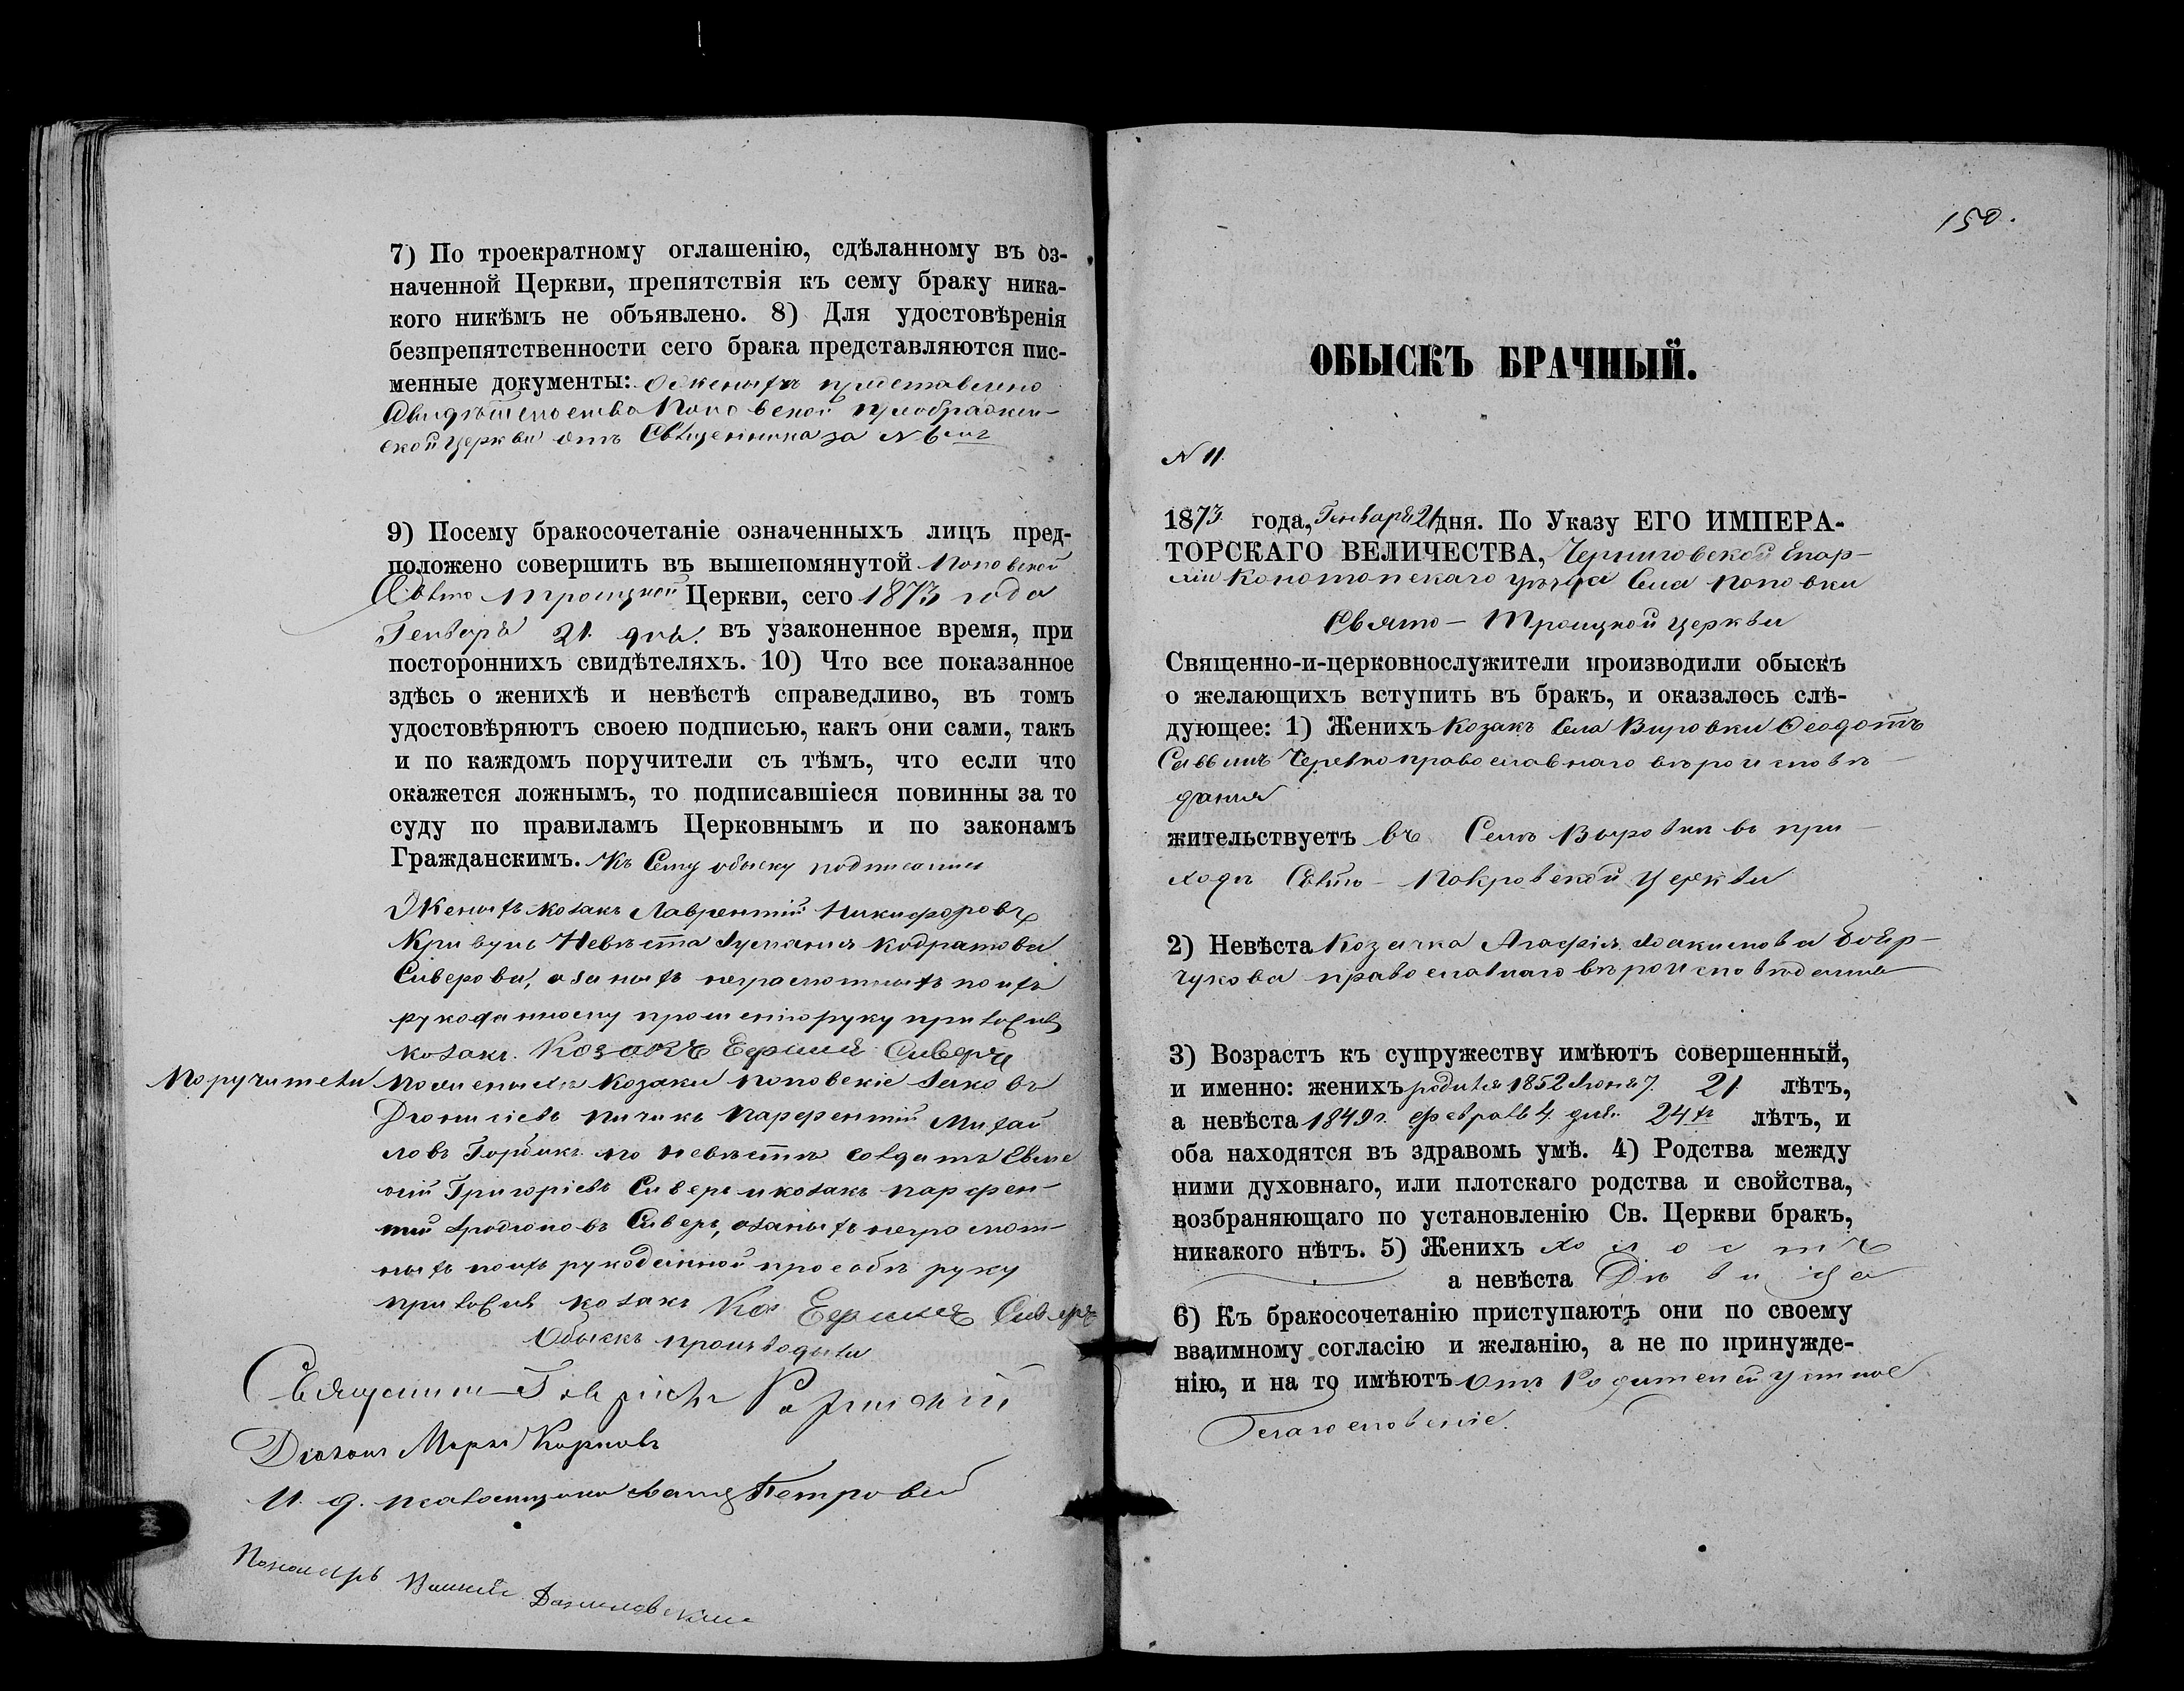 7) По троекратному оглашенію, сдѣланному въ оз-
наченной Церкви, препятствія къ сему браку ника-
кого никѣмъ не объявлено. 8) Для удостовѣренія
безпрепятственности сего брака представляются пис-
менные документы: О женихѣ представлено
Свидѣтельство Поповской Преображен-
ской церкви отъ Священника за № 6
9) Посему бракосочетаніе означенныхъ лицъ пред-
положено совершить въ вышепомянутой Поповской
Свято Троицкой Церкви, сего 1873 года
Генваря 21 дня. въ узаконенное время, при
постороннихъ свидѣтеляхъ. 10) Что все показанное
здѣсь о женихѣ и невѣстѣ справедливо, въ томъ
удостовѣряютъ своею подписью, какъ они сами, такъ
и по каждомъ поручители съ тѣмъ, что если что
окажется ложнымъ, то подписавшіеся повинны за то
суду по правиламъ Церковнымъ и по законамъ
Гражданскимъ. Къ Сему обыску подписались
Женихъ козакъ Лаврентій Никифоровъ
Кривуль Невѣста Кодратова
Сиверова, а за ныхъ неграмотныхъ по ихъ
рукоданному прошенію руку приложилъ
козакъ. Козакъ Ефимъ Сиверъ
Поручители По женихѣ Козаки Поповскіе Яковъ
Діонисіевъ Пичикъ Парфентій Михай
ловъ Горбикъ по невѣстѣ солдатъ Евме
ній Григоріевъ Сиверъ и козакъ Парфен-
тій Иродіоновъ Сиверъ, а за ныхъ неграмот-
ныхъ по ихъ рукоданной прозбѣ руку
приложилъ козакъ Коз Ефимъ Сиверъ
Обыскъ производили
Священникъ
Діаконъ Марко Карповъ
И. д. псаломщика Петровскій
Пономарь Даниловскій
150.
ОБЫСКЪ БРАЧНЫЙ.
N 11.
1873 года, Генваря 21 дня. По Указу ЕГО ИМПЕРА-
ТОРСКАГО ВЕЛИЧЕСТВА, Черниговской Епар-
хіи Конотопскаго уѣзда Села Поповки
Свято-Троицкой церкви
Священно-и-церковнослужители производили обыскъ
о желающихъ вступить въ бракъ, и оказалось слѣ-
дующее: 1) Женихъ Козакъ Села Вировки Феодотъ
Саввинъ православнаго вѣроисповѣ-
данія
жительствуетъ въ Селѣ Выровки въ при-
ходѣ Свято-Покровской Церкви
2) Невѣста Козачка Агафія Иоакимова Бояр-
чукова православнаго вѣроисповѣданія
3) Возрастъ къ супружеству имѣютъ совершенный,
и именно: женихъ родился 1852 Июня 7. 21 лѣтъ,
а невѣста 1849 г. Февраля 4. дня. 24хъ лѣтъ, и
оба находятся въ здравомъ умѣ. 4) Родства между
ними духовнаго, или плотскаго родства и свойства,
возбраняющаго по установленію Св. Церкви бракъ,
никакого нѣтъ. 5) Женихъ холостъ
а невѣста Дѣвица
6) Къ бракосочетанію приступаютъ они по своему
взаимному согласію и желанію, а не по принужде-
нію, и на то имѣютъ Отъ Родителей устное
Благословеніе.